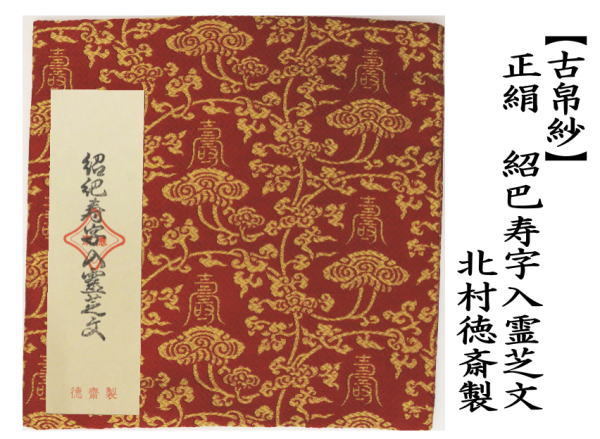 【古帛紗】
正絹　紹巴寿字入霊芝文
北村徳斎製
紹紀寿字入靈芝文
徳齋製